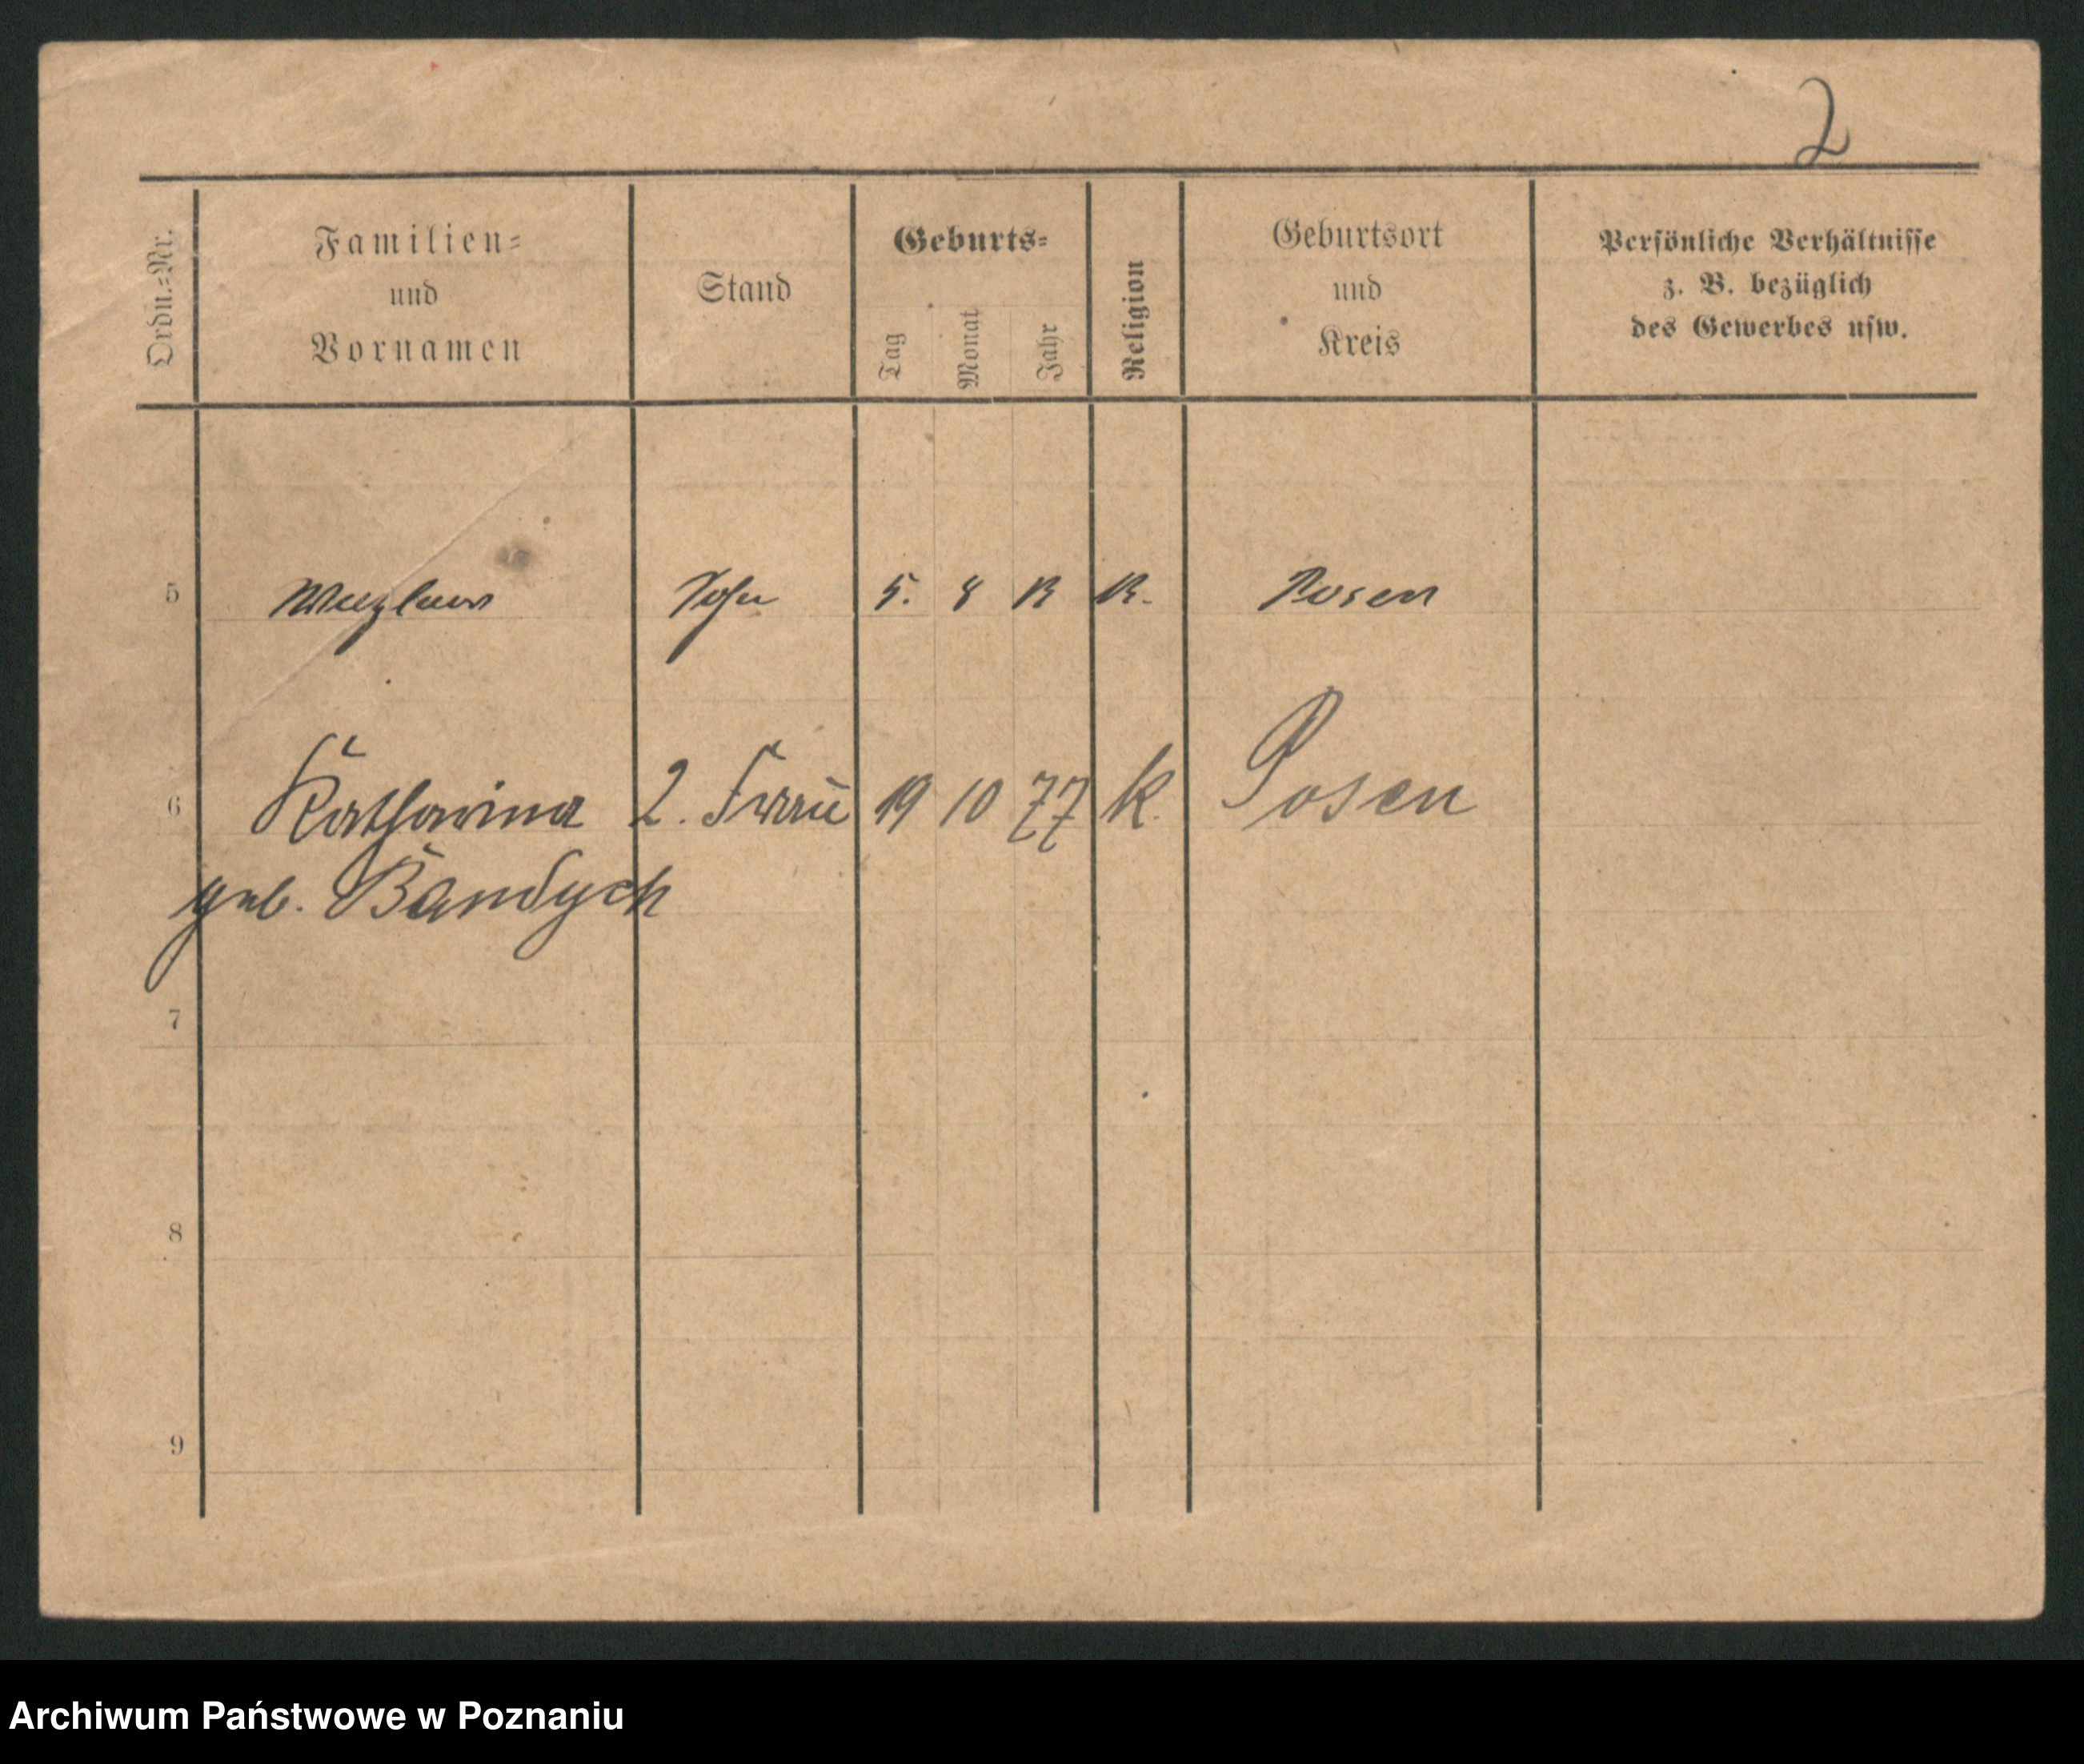 2
Ordn.-Nr.
Familien-
und
Vornamen
Stand
Geburts-
Tag
Monat
Jahr
Religion
Geburtsort
und
Kreis
Persönliche Verhältnisse
z. B. bezüglich
des Gewerbes usw.
5 Sohn 5. 8 K. Posen
6 Katharina 2. Frau 19 10 77 k. Posen
geb. Bandych
7
8
9
Archiwum Państwowe w Poznaniu